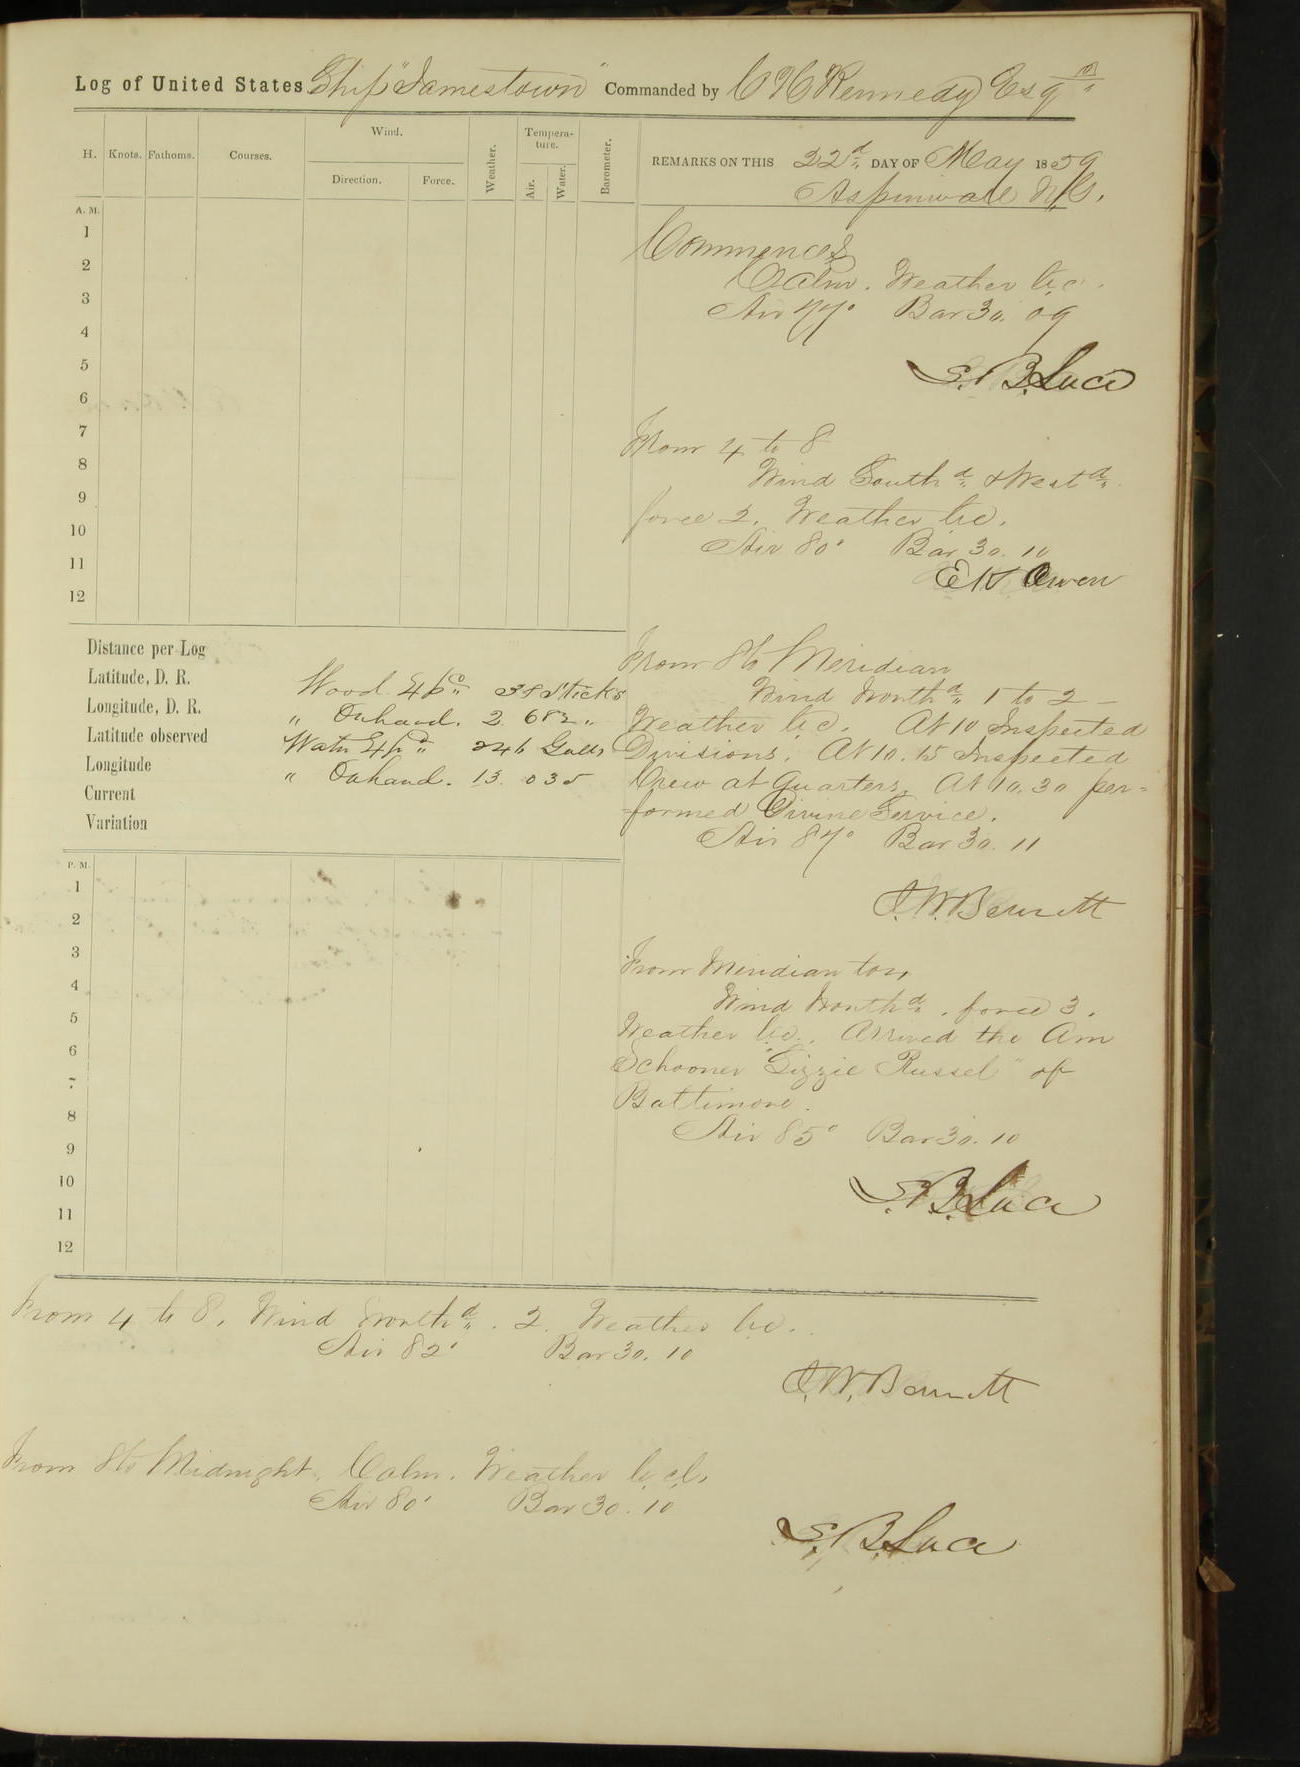 Log of United States Ship "Jamestown" Commanded by C H Kennedy Esqr
H. Knots. Fathoms. Courses. Wind. Direction. Force. Weather. Tempera-ture. Air. Water. Barometer.
REMARKS ON THIS 22d DAY OF May 1859
Aspinwall N.G.
A. M.
1
2
3
4
5
6
7
8
9
10
11
12
Commences
Calm. Weather b.c.
Air 77° Bar 30.09
S. B. Luce
From 4 to 8
Wind Southd & Westd
force 2. Weather b.c.
Air 80° Bar 30.10
E K Owen
Distance per Log
Latitude, D. R.
Longitude, D. R.
Latitude observed
Longitude
Current
Variation
Wood Expd 38 Sticks
" Onhand. 2.682 "
Water Expd 246 Galls
" Onhand. 13.035
From 8 to Meridian
Wind Northd 1 to 2 –
Weather b.c. At 10 Inspected
Divisions. At 10.15 Inspected
Crew at Quarters. At 10.30 per=
formed Divine Service.
Air 87° Bar 30.11
J. W. Bennett
P. M.
1
2
3
4
5
6
7
8
9
10
11
12
From Meridian to 4
Wind Northd. force 3.
Weather b.c. Arrived the Am
Schooner "Lizzie Russel" of
Baltimore.
Air 85° Bar 30.10
S. B. Luce
From 4 to 8. Wind Northd. 2. Weather b.c.
Air 82° Bar 30.10
J. W. Bennett
From 8 to Midnight. Calm. Weather b.c.l.
Air 80° Bar 30.10
S. B. Luce